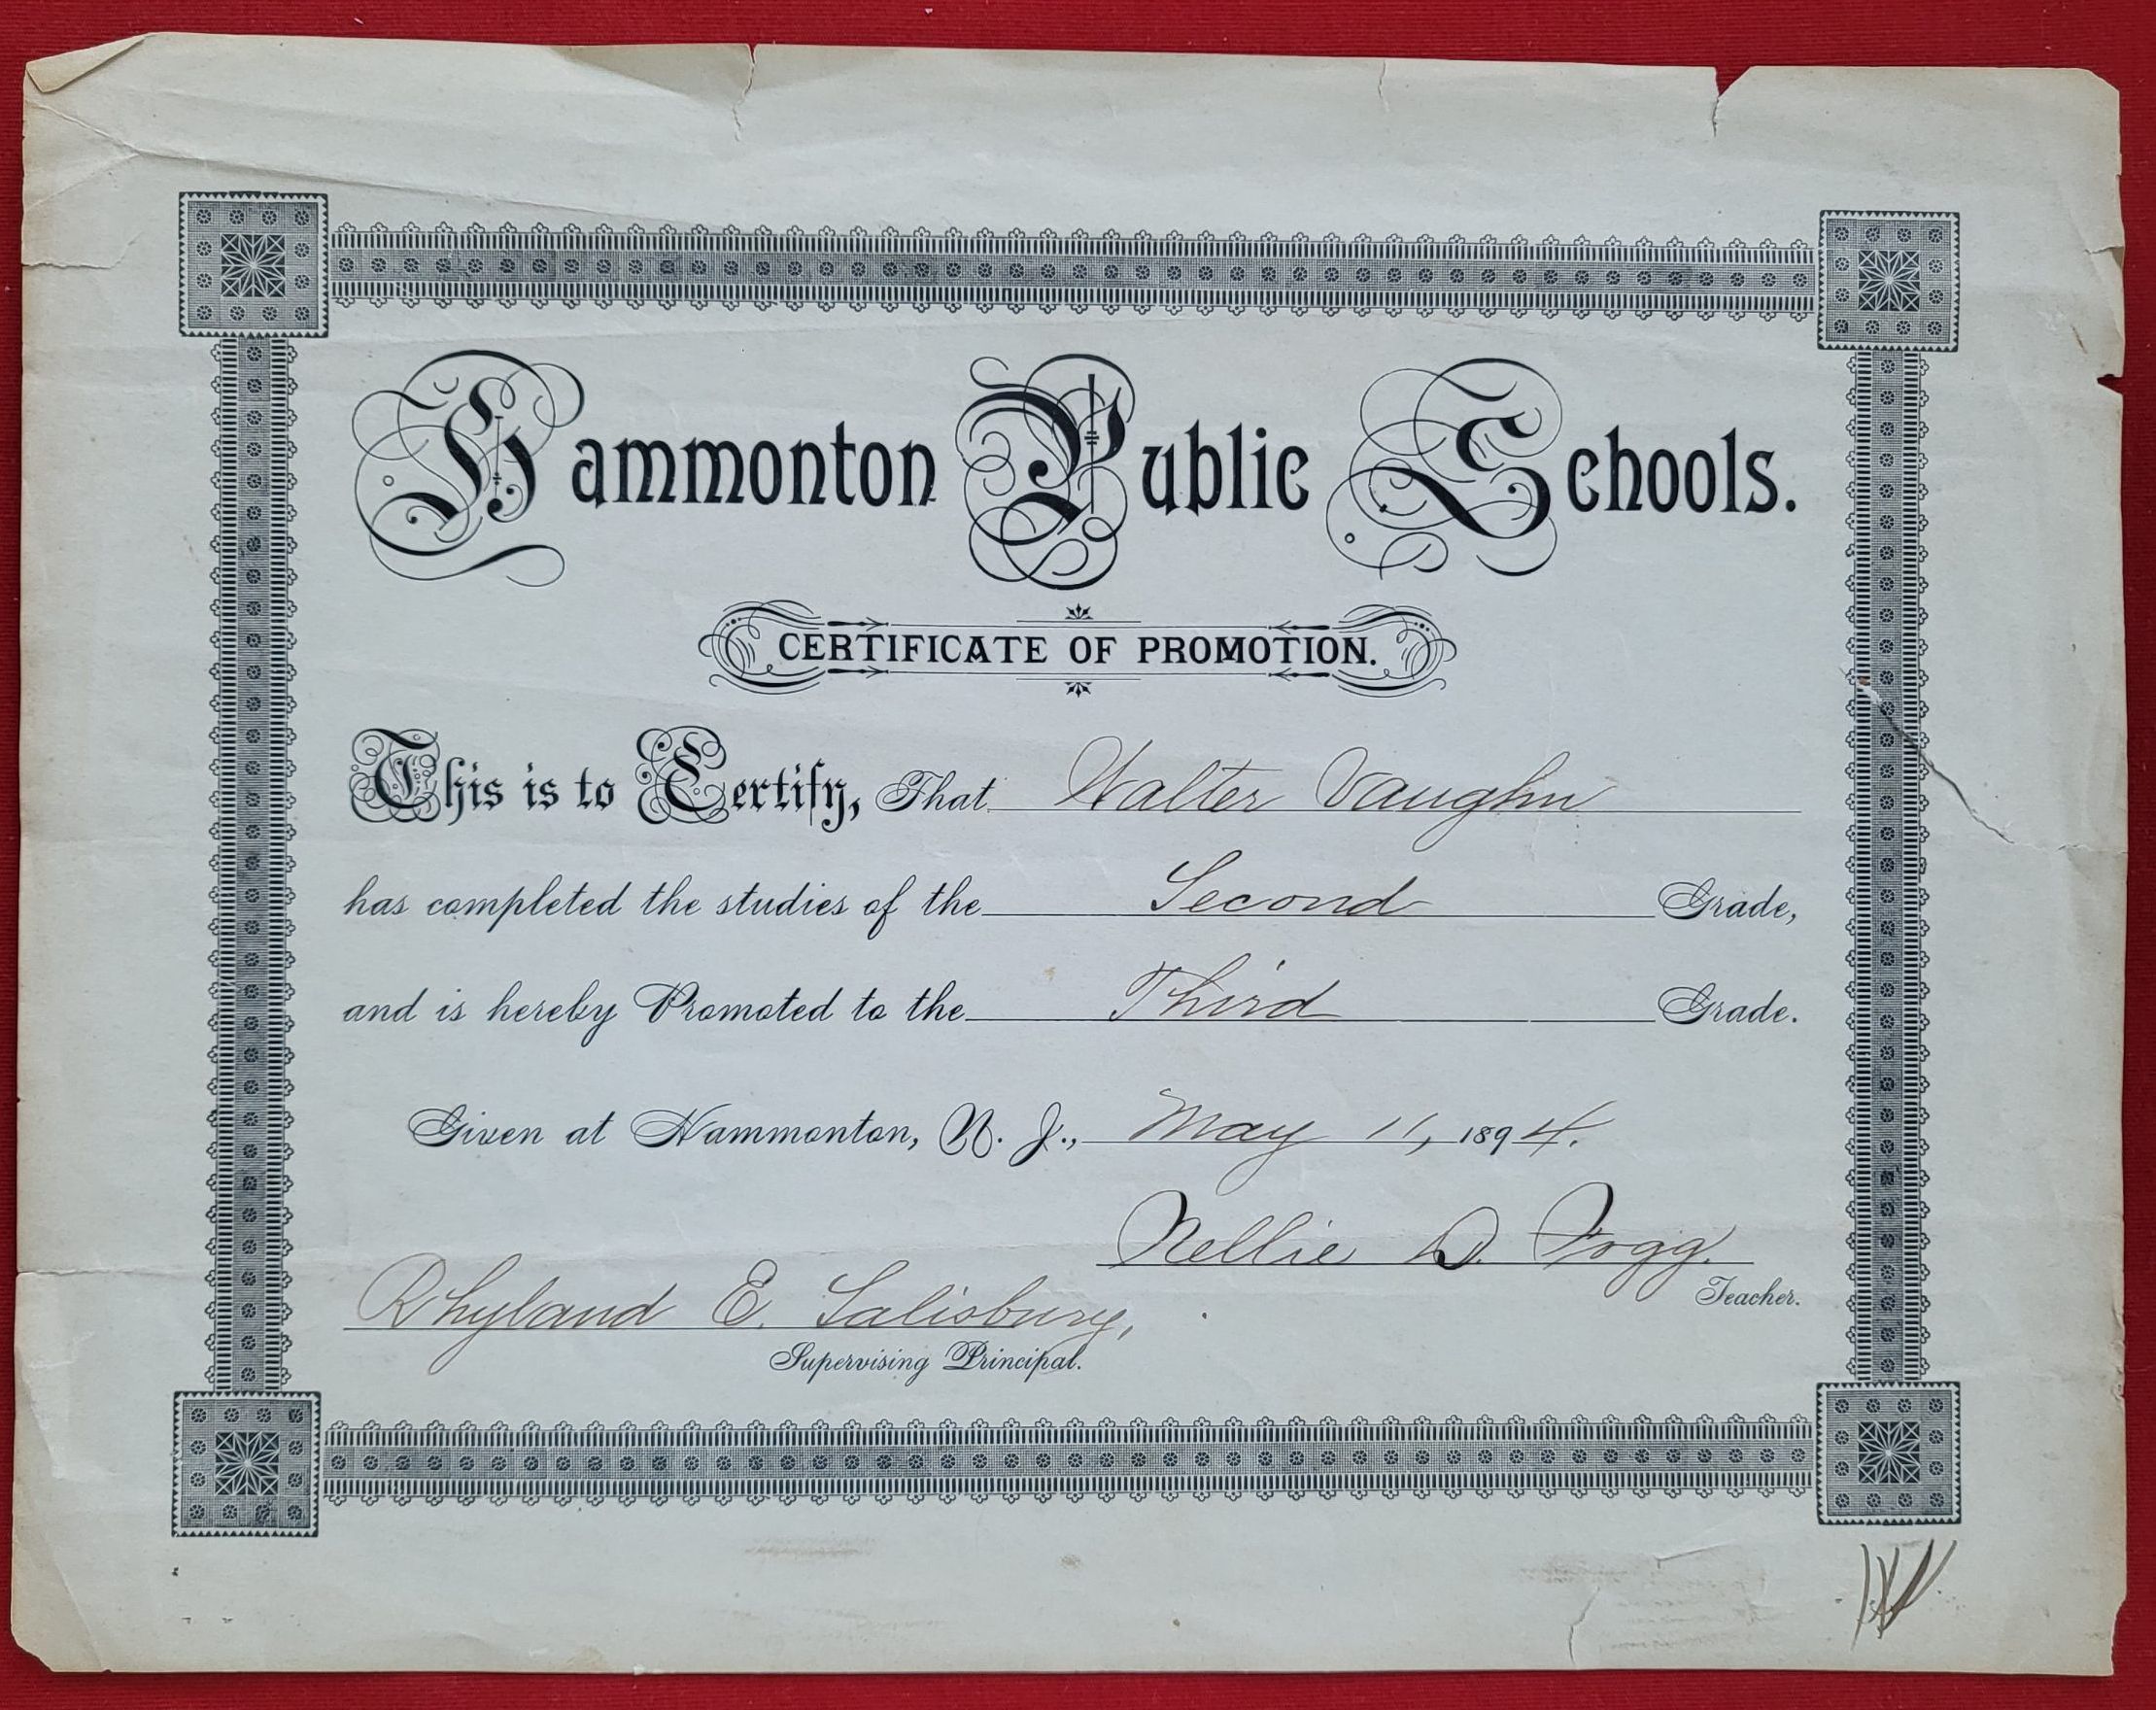 Hammonton Public Schools.
CERTIFICATE OF PROMOTION.
This is to Certify, That Walter Vaughn
has completed the studies of the Second Grade,
and is hereby Promoted to the Third Grade.
Given at Hammonton, N. J., May 11, 1894.
Nellie D. Fogg.
Teacher.
Rhyland E. Salisbury,
Supervising Principal.